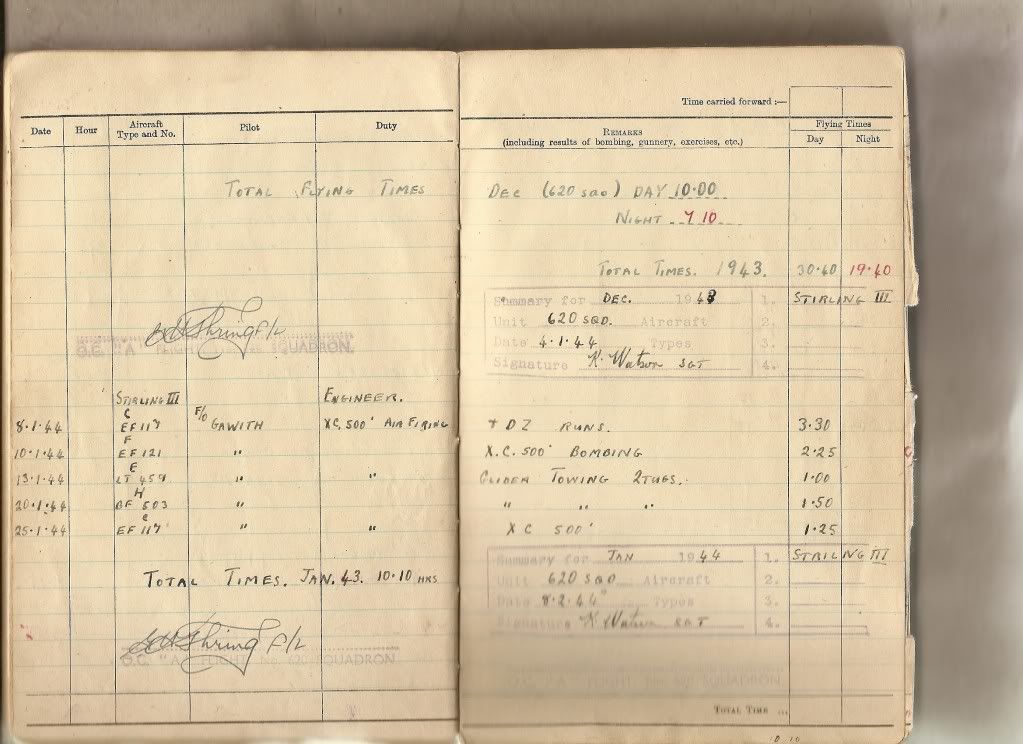 Time carried forward :—
Date Hour Aircraft Type and No. Pilot Duty
REMARKS
(including results of bombing, gunnery, exercises, etc.)
Flying Times
Day Night
TOTAL FLYING TIMES DEC (620 SQD) DAY 10·00
NIGHT 7 10
TOTAL TIMES. 1943. 30·40 19·40
Summary for DEC. 1943 1. STIRLING III
Unit 620 SQD. Aircraft 2.
Date 4·1·44 Types 3.
Signature K. Watson SGT 4.
F/L
O.C. "A" SQUADRON.
STIRLING III ENGINEER.
C
8·1·44 EF 117 F/O GAWITH XC, 500' AIR FIRING + DZ RUNS. 3·30
F
10·1·44 EF 121 " X.C. 500' BOMBING 2·25
E
13·1·44 459 " " GLIDER TOWING 2 TUGS. 1·00
H
20·1·44 503 " " " " 1·50
C
25·1·44 EF 117 " " XC 500' 1·25
Summary for JAN 1944 1. STRILNG III
Unit 620 SQD Aircraft 2.
Date 8·2·44 Types 3.
Signature K Watson SGT 4.
TOTAL TIMES. JAN. 43. 10·10 HRS
F/L
O.C. "A" FLIGHT, No. 620 SQUADRON
O.C. "A" FLIGHT, No. 620 SQUADRON
TOTAL TIME ...